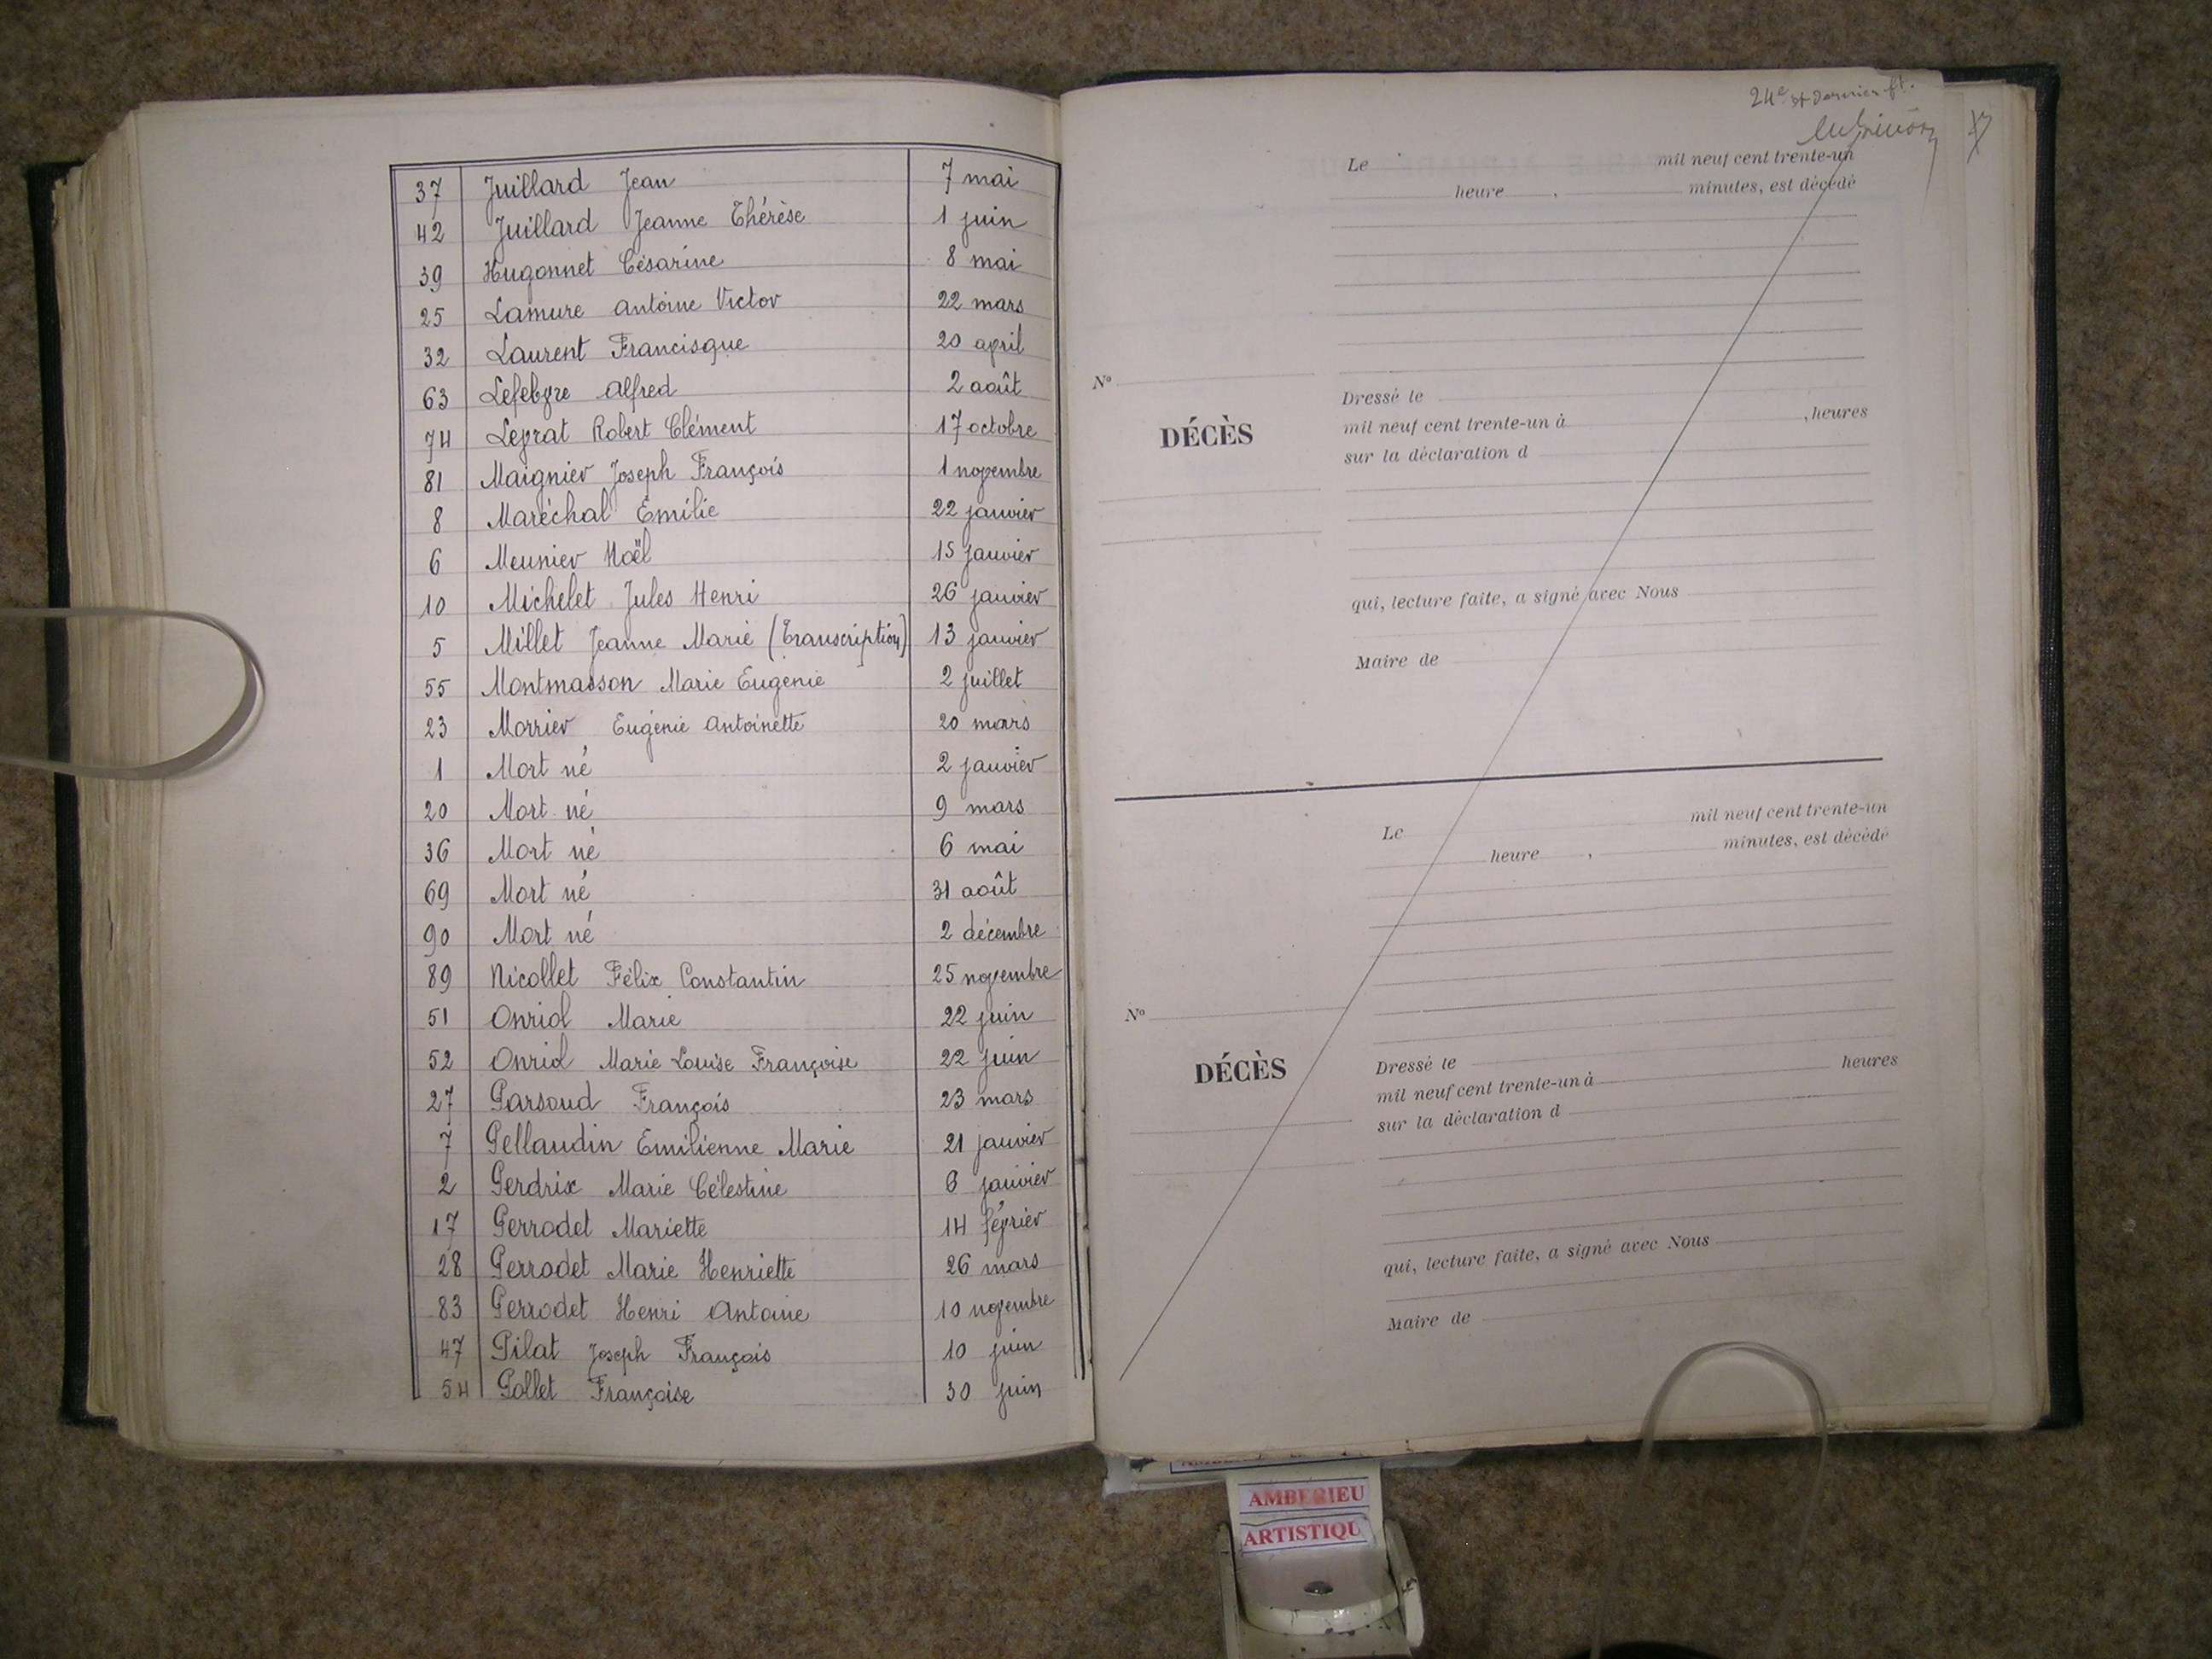 37 Juillard Jean 7 mai
42 Juillard Jeanne Thérèse 1 juin
39 Hugonnet Césarine 8 mai
25 Lamure Antoine Victor 22 mars
32 Laurent Francisque 20 april
63 Lefebvre Alfred 2 août
74 Leprat Robert Clément 17 octobre
81 Maignier Joseph François 1 novembre
8 Maréchal Emilie 22 janvier
6 Meunier Noël 15 janvier
10 Michelet Jules Henri 26 janvier
5 Millet Jeanne Marie (Transcription) 13 janvier
55 Montmasson Marie Eugénie 2 juillet
23 Morrier Eugénie Antoinette 20 mars
1 Mort né 2 janvier
20 Mort né 9 mars
36 Mort né 6 mai
69 Mort né 31 août
90 Mort né 2 décembre
89 Nicollet Félix Constantin 25 novembre
51 Onriol Marie 22 juin
52 Onriol Marie Louise Françoise 22 juin
27 Parsoud François 23 mars
7 Pellaudin Emilienne Marie 21 janvier
2 Perdrix Marie Célestine 6 janvier
17 Perrodet Mariette 14 février
28 Perrodet Marie Henriette 26 mars
83 Perrodet Henri Antoine 10 novembre
47 Pilat Joseph François 10 juin
54 Pollet Françoise 30 juin
24e et dernier ft.
Le mil neuf cent trente-un
heure , minutes, est décédé
No
DÉCÈS
Dressé le
mil neuf cent trente-un à , heures
sur la déclaration d
qui, lecture faite, a signé avec Nous
Maire de
Le mil neuf cent trente-un
heure , minutes, est décédé
No
DÉCÈS
Dressé le
mil neuf cent trente-un à heures
sur la déclaration d
qui, lecture faite, a signé avec Nous
Maire de
AMBERIEU
ARTISTIQU